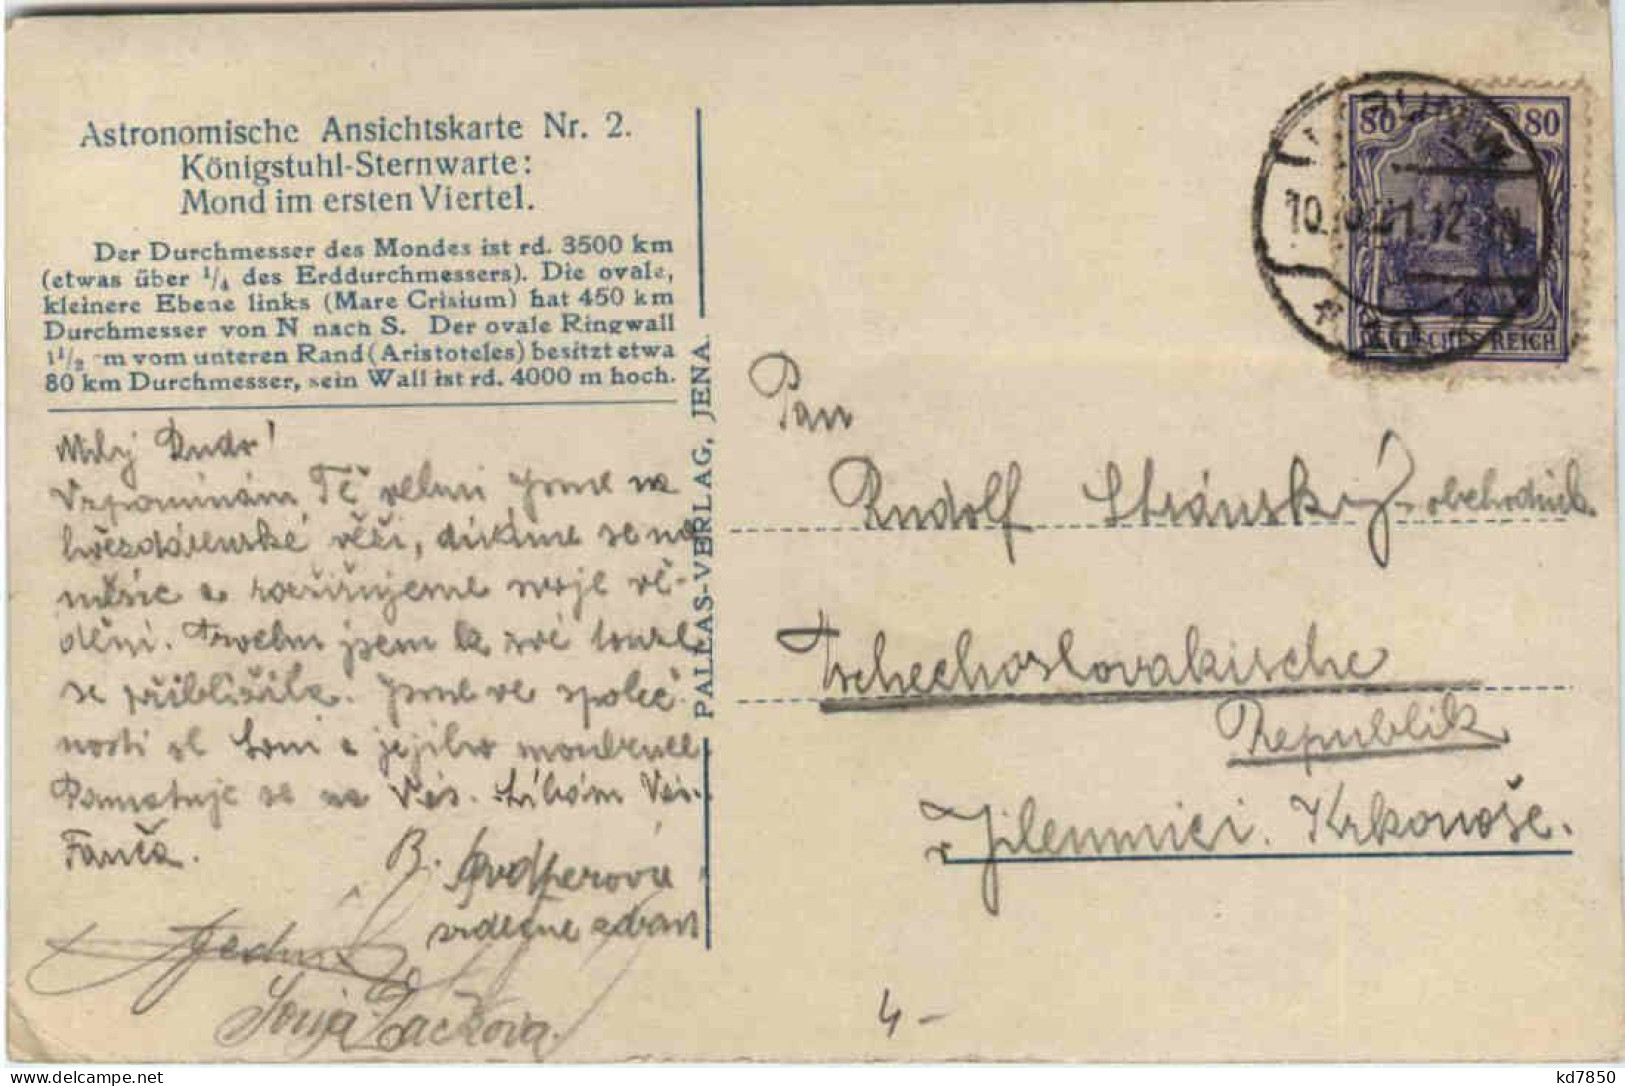 Astronomische Ansichtskarte Nr. 2.
Königstuhl-Sternwarte:
Mond im ersten Viertel.
Der Durchmesser des Mondes ist rd. 3500 km
(etwas über 1/4 des Erddurchmessers). Die ovale,
kleinere Ebene links (Mare Crisium) hat 450 km
Durchmesser von N nach S. Der ovale Ringwall
1 1/2 cm vom unteren Rand (Aristoteles) besitzt etwa
80 km Durchmesser, sein Wall ist rd. 4000 m hoch.
PALLAS-VERLAG, JENA.
Milý Rudo!
Vzpomínám Tě velmi jsme na
hvězdárenské věži, díváme se na
měsíc a rozšiřujeme svoje vě-
dění. Trochu jsem k své touze
se přiblížila. Jsme ve společ-
nosti sl. Soni a jejího
Pamatuje se na Vás. Líbám Vás.
Fanča.
B.
srdečně zdraví
Sonja Žáčková.
80 80
DEUTSCHES REICH
10. 21. 12
Pan
Rudolf Stránský obchodník
Tschechoslovakische
Republik
Jilemnici. Krkonoše.
4-
kd7850